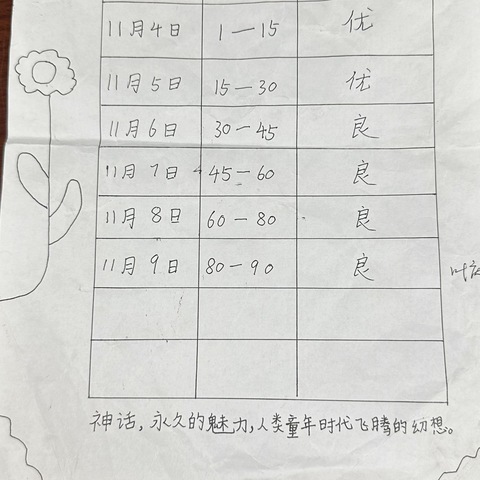 11月4日 1—15 优
11月5日 15—30 优
11月6日 30—45 良
11月7日 45—60 良
11月8日 60—80 良
11月9日 80—90 良
神话，永久的魅力，人类童年时代飞腾的幻想。